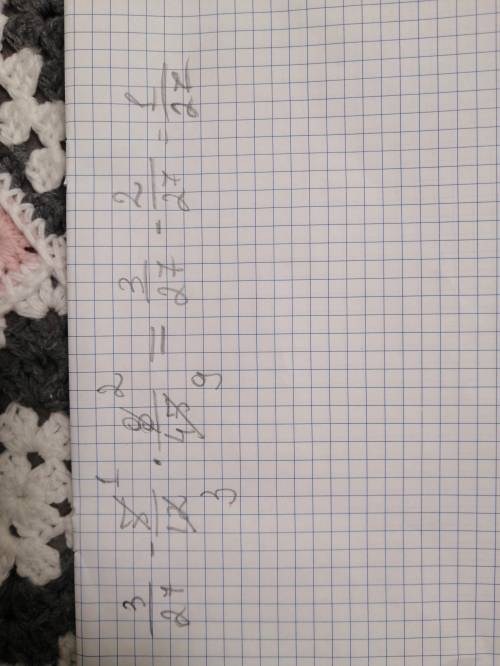 3/27 - 5̸ 1/1̸2̸ 3 · 8̸ 2/4̸5̸ 9 = 3/27 - 2/27 = 1/27